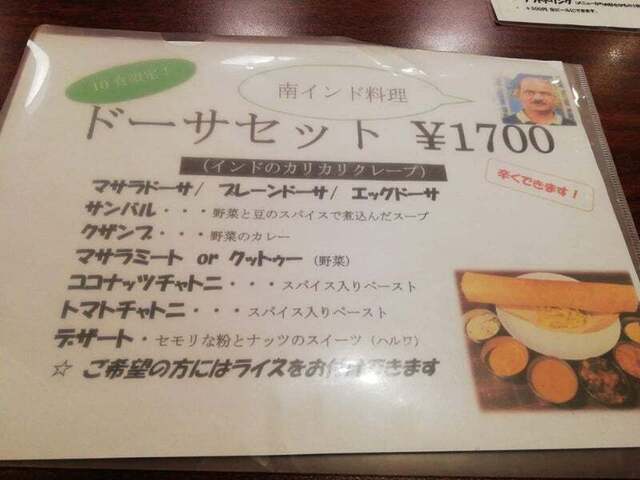 10食限定！
南インド料理
ドーサセット ￥1700
（インドのカリカリクレープ）
辛くできます！
マサラドーサ/ プレーンドーサ/ エッグドーサ
サンバル・・・野菜と豆のスパイスで煮込んだスープ
クザンブ・・・野菜のカレー
マサラミート or クットゥー（野菜）
ココナッツチャトニ・・・スパイス入りペースト
トマトチャトニ・・・スパイス入りペースト
デザート・セモリな粉とナッツのスイーツ（ハルワ）
☆ ご希望の方にはライスをお付けできます